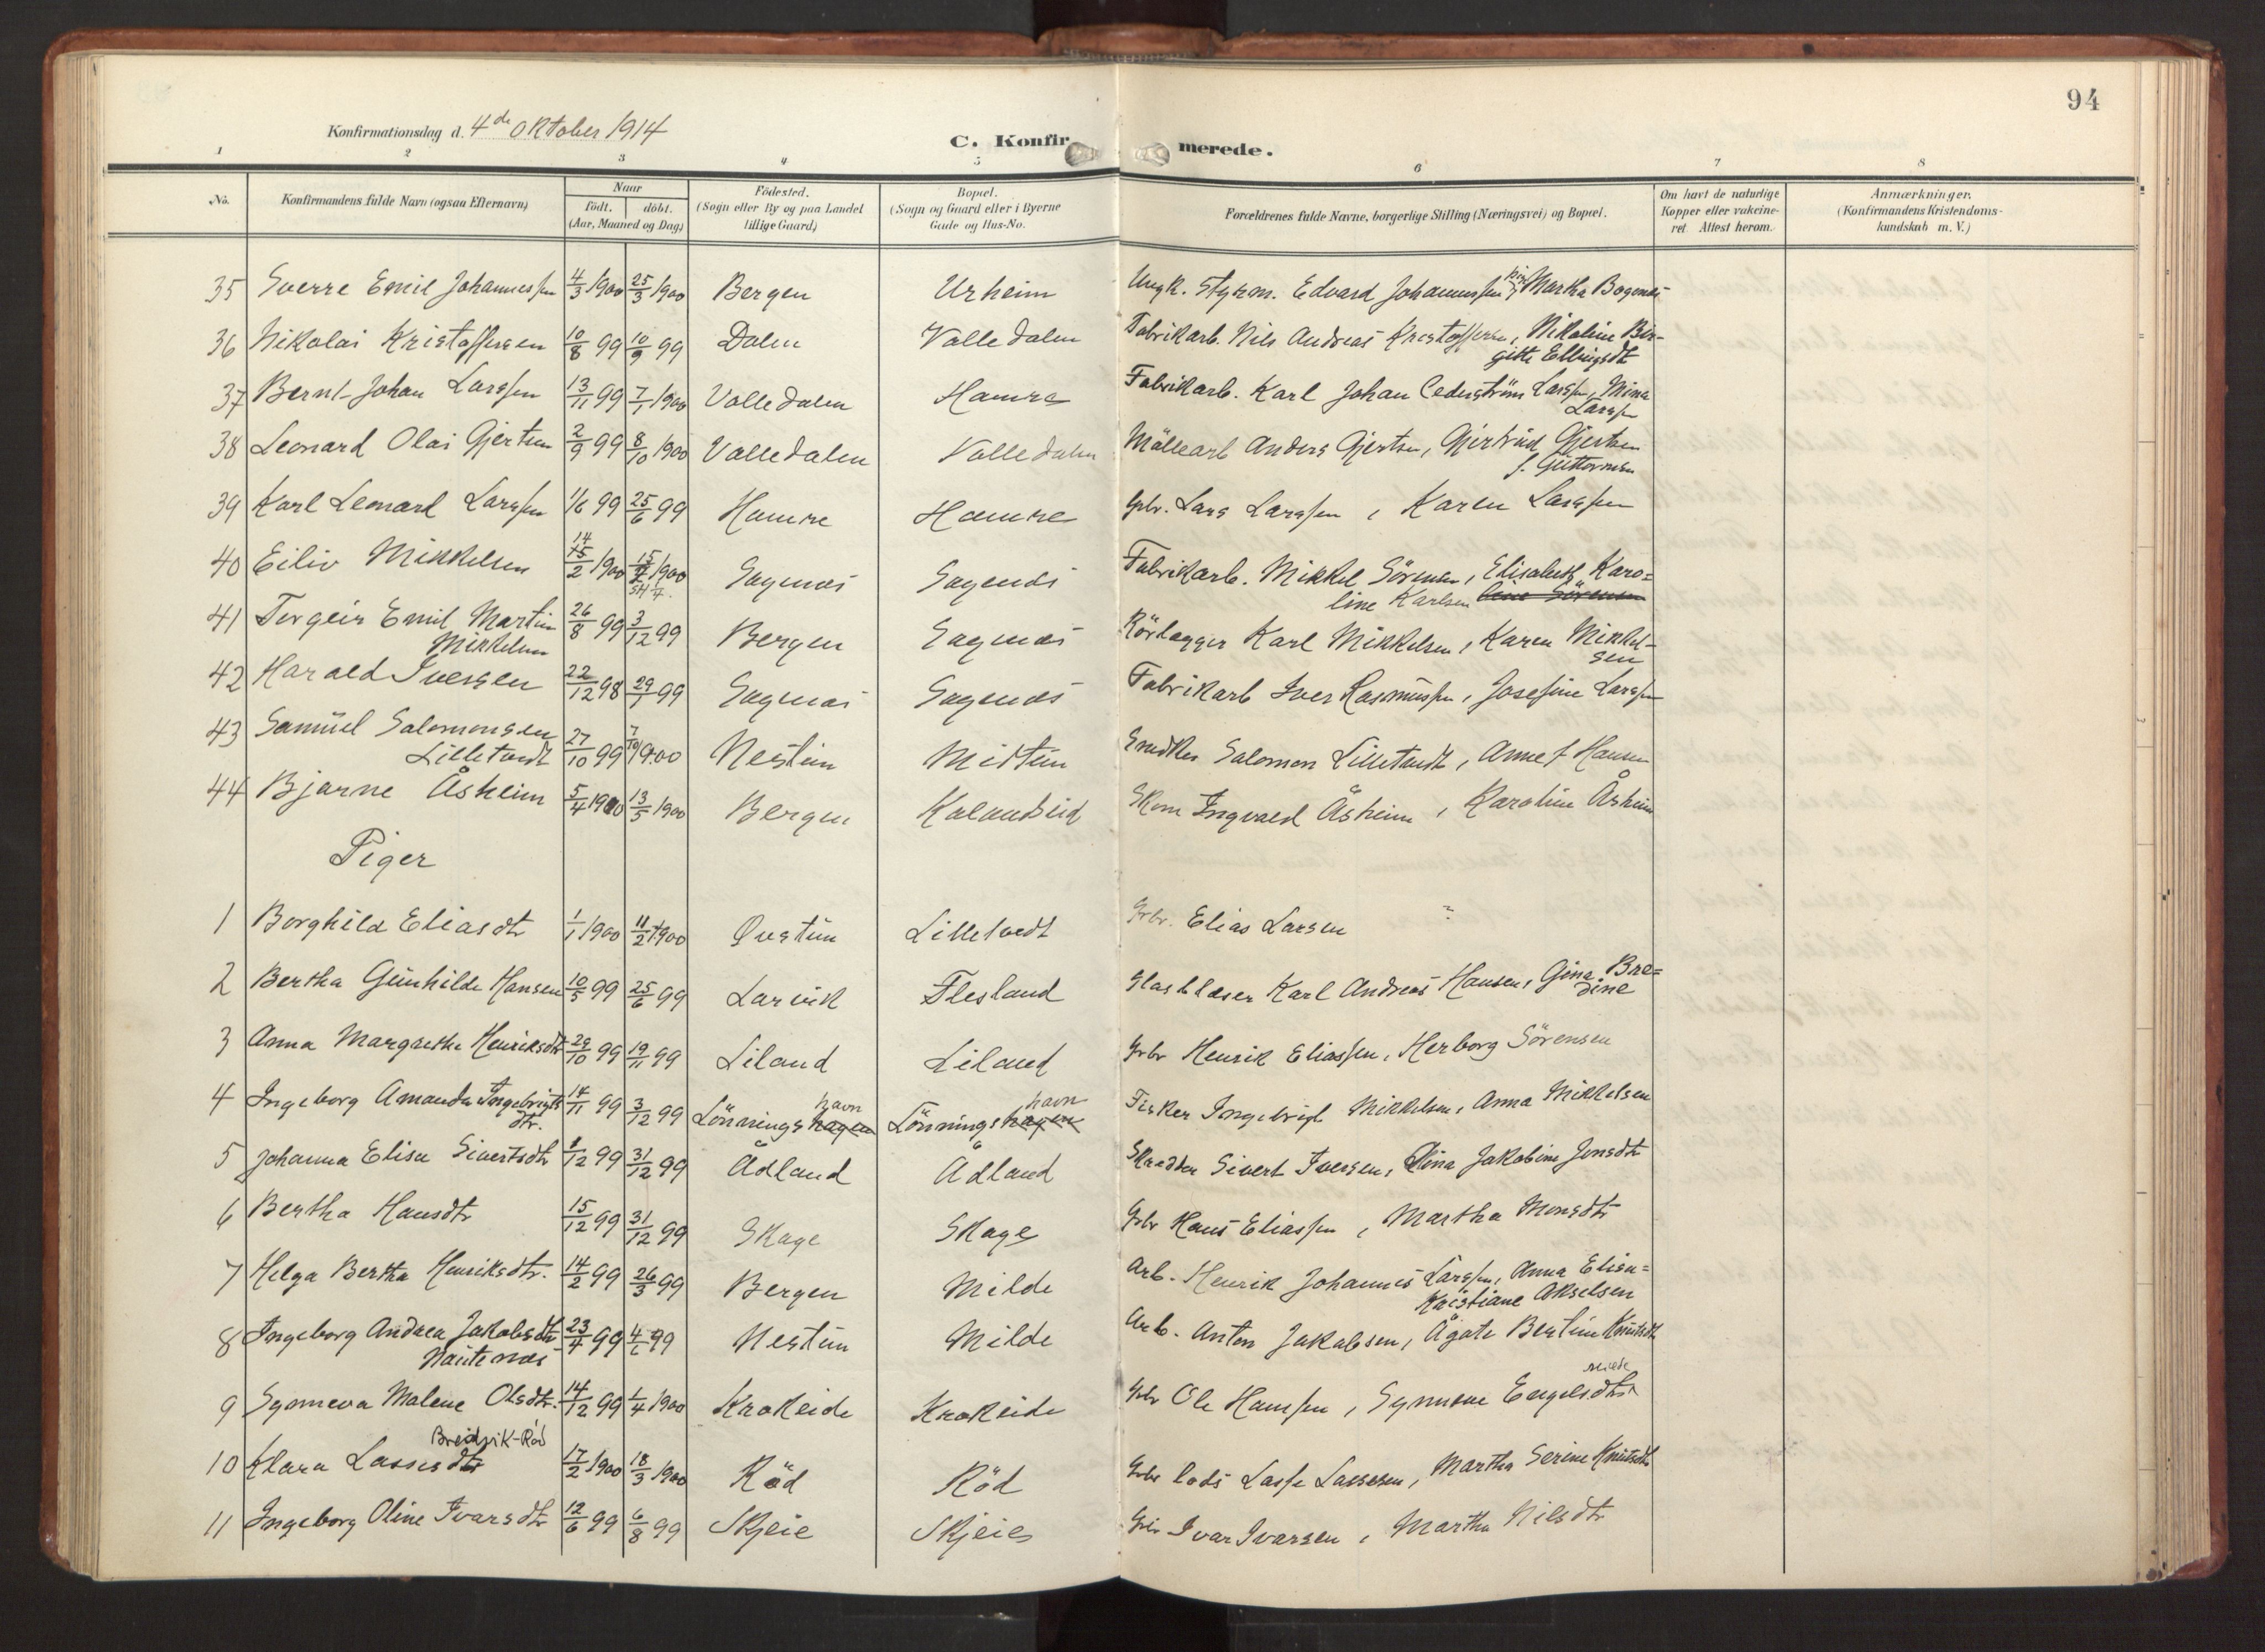 94
Konfirmationsdag d. 4de Oktober 1914
C. Konfirmerede.
1 2 3 4 5 6 7 8
No. Konfirmandens fulde Navn (ogsaa Efternavn) Naar födt. döbt. (Aar, Maaned og Dag) Födested. (Sogn eller By og paa Landet tillige Gaard) Bopæl. (Sogn og Gaard eller i Byerne Gade og Hus-No. Forældrenes fulde Navne, borgerlige Stilling (Næringsvei) og Bopæl. Om havt de naturlige Kopper eller vakcineret. Attest herom. Anmærkninger. (Konfirmandens Kristendomskundskab m. V.)
35 Sverre Emil Johannessen 4/3 1900 25/3 1900 Bergen Urheim Ungk. Styrm. Edvard Johannessen, pige Martha Bogenæs
36 Nikolai Kristoffersen 10/8 99 10/9 99 Dalen Valledalen Fabrikarb. Nils Andreas Kristoffersen, Nikoline Bir-
gitte Ellingsdt
37 Bernt Johan Larssen 13/11 99 7/1 1900 Valledalen Hamre Fabrikarb. Karl Johan Cederström Larssen, Mina
Larssen
38 Leonard Olai Gjertsen 2/9 99 8/10 1900 Valledalen Valledalen Möllearb Anders Gjertsen, Gjertrud Gjertsen
f. Guttormsen
39 Karl Leonard Larssen 1/6 99 25/6 99 Hamre Hamre Gbr. Lars Larssen, Karen Larssen
40 Eiliv Mikkelsen 14 15/2 1900 15/7 1900 Sagenæs Sagenæs Fabrikarb. Mikkel Sörensen, Elisabeth Karo=
line Karlsen Sörensen
41 Torgeir Emil Martin 26/8 99 3/12 99 Bergen Sagenæs Rörlægger Karl Mikkelsen, Karen Mikkel-
Mikkelsen sen
42 Harald Iversen 22/12 98 29/1 99 Sagenæs Sagenæs Fabrikarb Iver Rasmussen, Josefine Larssen
43 Samuel Salomonsen 27/10 99 7/10 1900 Nestun Midtun Snedker Salomon Lilletvedt, Anne f Hansen
Lilletvedt
44 Bjarne Åsheim 5/4 1900 13/5 1900 Bergen Kalandseid Skom Ingvald Åsheim, Karoline Åsheim
Piger
1 Borghild Eliasdtr 1/1 1900 11/2 1900 Övstun Lilletvedt Gbr. Elias Larsen ?
2 Bertha Gunhilde Hansen 10/5 99 25/6 99 Larvik Flesland Glasblæser Karl Andreas Hansen, Gina Bre=
dine
3 Anna Margrethe Henriksdtr 29/10 99 19/11 99 Liland Liland Gbr Henrik Eliassen, Herborg Sörensen
4 Ingeborg Amanda Ingebrigts 14/11 99 3/12 99 Lönningshagen havn Lönningshagen havn Fisker Ingebrigt Mikkelsen, Anna Mikkelsen
dtr.
5 Johanna Elisa Sivertsdtr 1/12 99 31/12 99 Ådland Ådland Skrædder Sivert Iversen, Elina Jakobine Jensdtr
6 Bertha Hansdtr 15/12 99 31/12 99 Skage Skage Gbr Hans Eliassen, Martha Monsdtr
7 Helga Bertha Henriksdtr. 14/2 99 26/3 99 Bergen Milde Arb. Henrik Johannes Larssen, Anna Elisa=
Kristiane Akselsen
8 Ingeborg Andrea Jakobsdtr 23/4 99 4/6 99 Nestun Milde Arb. Anton Jakobsen, Ågate Bertine Knutsdtr
Nautenæs
9 Synneva Malene Olsdtr. 14/12 99 1/4 1900 Krokeide Krokeide Gbr Ole Hanssen, Synneve Engelsdtr
Breidvik-Röd
10 Klara Lassesdtr 17/2 1900 18/3 1900 Röd Röd Gbr lods Lasse Lassesen, Martha Serine Knutsdtr
11 Ingeborg Oline Ivarsdtr 12/6 99 6/8 99 Skjeie Skjeie Gbr Ivar Ivarsen, Martha Nilsdtr